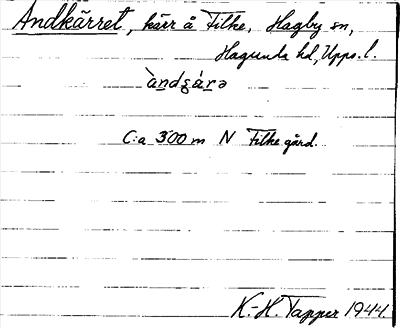 Andkärret, kärr å Filke, Hagby sn,
Hagunda hd, Upps. l.
C:a 300 m N Filke gård.
K.-H. Tapper 1944.